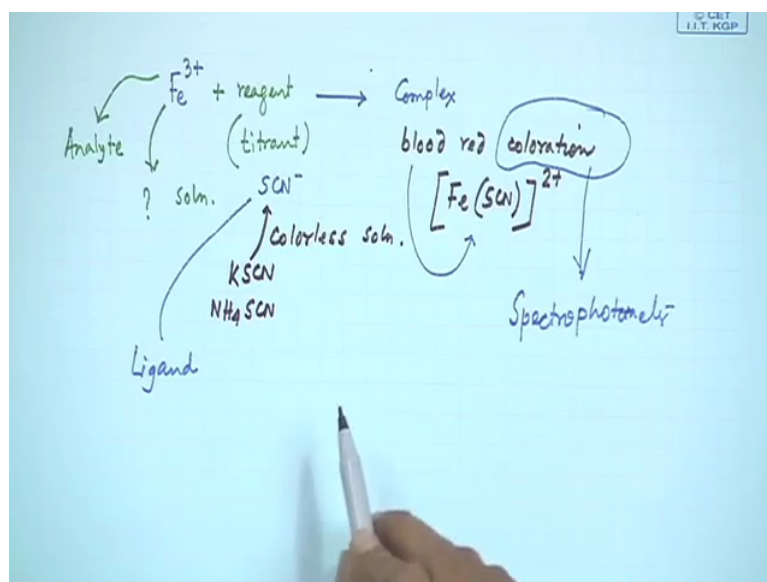 © CET
I.I.T. KGP
Fe3+ + reagent → Complex
Analyte
(titrant)
blood red coloration
? soln.
SCN-
[Fe(SCN)]2+
Colorless soln.
KSCN
NH4SCN
Spectrophotometer
Ligand